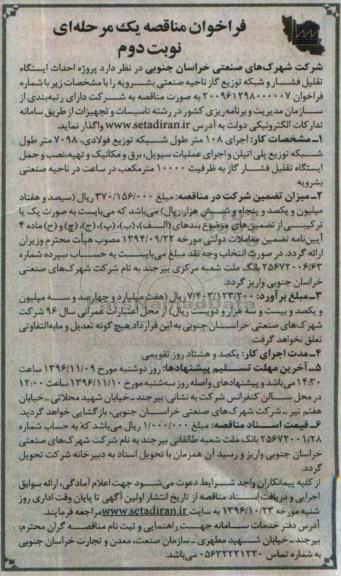 فراخوان مناقصه یک مرحله‌ای
نوبت دوم
شرکت شهرک‌های صنعتی خراسان جنوبی در نظر دارد پروژه احداث ایستگاه
تقلیل فشار و شبکه توزیع گاز ناحیه صنعتی بشرویه را با مشخصات زیر با شماره
فراخوان ۲۰۰۹۶۱۲۹۸۰۰۰۰۰۷ به صورت مناقصه به شرکت دارای رتبه‌بندی از
سازمان مدیریت و برنامه‌ریزی کشور در رشته تاسیسات و تجهیزات از طریق سامانه
تدارکات الکترونیکی دولت به آدرس www.setadiran.ir واگذار نماید.
۱-مشخصات کار: اجرای ۱۰۸ متر طول شبکه توزیع فولادی، ۷۰۹۸ متر طول
شبکه توزیع پلی اتیلن و اجرای عملیات سیویل، برق و مکانیک و تهیه،نصب و حمل
ایستگاه تقلیل فشار گاز به ظرفیت ۱۰۰۰۰ مترمکعب در ساعت در ناحیه صنعتی
بشرویه
۲-میزان تضمین شرکت در مناقصه: مبلغ ۳۷۰/۱۵۶/۰۰۰ ریال (سیصد و هفتاد
میلیون و یکصد و پنجاه و شش هزار ریال) می‌باشد که می‌بایست به صورت یک یا
ترکیبی از تضمین‌های موضوع بندهای (الف)، (ب)، (پ)، (ج)، (چ) و (ح) ماده ۴
آیین‌نامه تضمین معاملات دولتی مورخه ۱۳۹۴/۰۹/۲۲ مصوب هیأت محترم وزیران
ارائه گردد. در صورت انتخاب وجه نقد مبلغ می‌بایست به حساب سپرده شماره
۲۵۶۷۲۰۰۶/۶۳ بانک ملت شعبه مرکزی بیرجند به نام شرکت شهرک‌های صنعتی
خراسان جنوبی واریز گردد.
۳-مبلغ برآورد: ۷/۴۰۳/۱۲۳/۲۰۰ ریال (هفت میلیارد و چهارصد و سه میلیون
و یکصد و بیست و سه هزار و دویست ریال) از محل اعتبارات عمرانی سال ۹۶ شرکت
شهرک‌های صنعتی خراسان جنوبی به این قرارداد هیچ گونه تعدیل و مابه‌التفاوتی
تعلق نخواهد گرفت
۴-مدت اجرای کار: یکصد و هشتاد روز تقویمی
۵-آخرین مهلت تسلیم پیشنهادها: روز دوشنبه مورخ ۱۳۹۶/۱۱/۰۹ ساعت
۱۴:۳۰ می‌باشد و پیشنهادهای واصله روز سه‌شنبه مورخ ۱۳۹۶/۱۱/۱۰ ساعت ۱۲:۰۰
در محل سالن کنفرانس شرکت به نشانی: بیرجند-خیابان شهید محلاتی-خیابان
هفتم تیر-شرکت شهرک‌های صنعتی خراسان جنوبی، بازگشایی خواهد گردید.
۶-قیمت اسناد مناقصه: مبلغ ۱/۰۰۰/۰۰۰ ریال می‌باشد که به حساب شماره
۲۵۶۷۲۰۰۱/۲۸ بانک ملت شعبه طالقانی بیرجند به نام شرکت شهرک‌های صنعتی
خراسان جنوبی واریز و رسید آن همزمان با تحویل اسناد به دبیرخانه شرکت تحویل
گردد.
از کلیه پیمانکاران واجد شرایط دعوت می‌شود جهت اعلام آمادگی، ارائه سوابق
اجرایی و دریافت اسناد مناقصه از تاریخ انتشار اولین آگهی تا پایان وقت اداری روز
شنبه مورخه ۱۳۹۶/۱۰/۲۳ به سایت www.setadiran.ir مراجعه فرمایند.
آدرس دفتر خدمات سامانه جهت راهنمایی و ثبت نام مناقصه گران محترم:
بیرجند-خیابان شهید مطهری-سازمان صنعت، معدن و تجارت خراسان جنوبی
به شماره تماس ۰۵۶۳۲۲۲۱۲۲۰ می‌باشد.